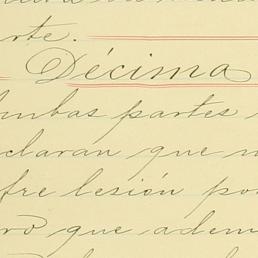 rte.
Décima
mbas partes
claran que n
fre lesión po
ro que adem